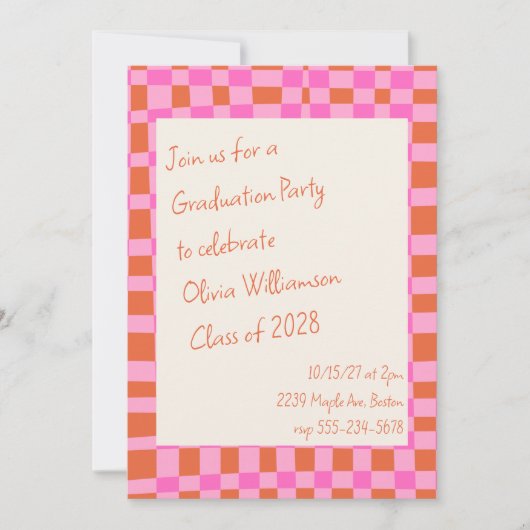 Join us for a
Graduation Party
to celebrate
Olivia Williamson
Class of 2028
10/15/27 at 2pm
2239 Maple Ave, Boston
rsvp 555-234-5678